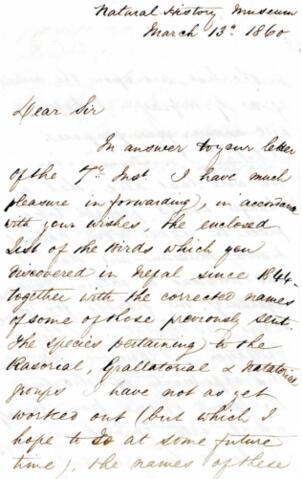 Natural History Museum
March 13th 1860
Dear Sir
In answer to your letter
of the 7th Inst I have much
pleasure in forwarding, in accordance
with your wishes, the enclosed
List of the Birds which you
discovered in Nepal since 1844
together with the corrected names
of some of those previously sent.
The species pertaining to the
Rasorial, Grallatorial & Natatorial
groups I have not as yet
worked out (but which I
hope to do at some future
time), the names of these